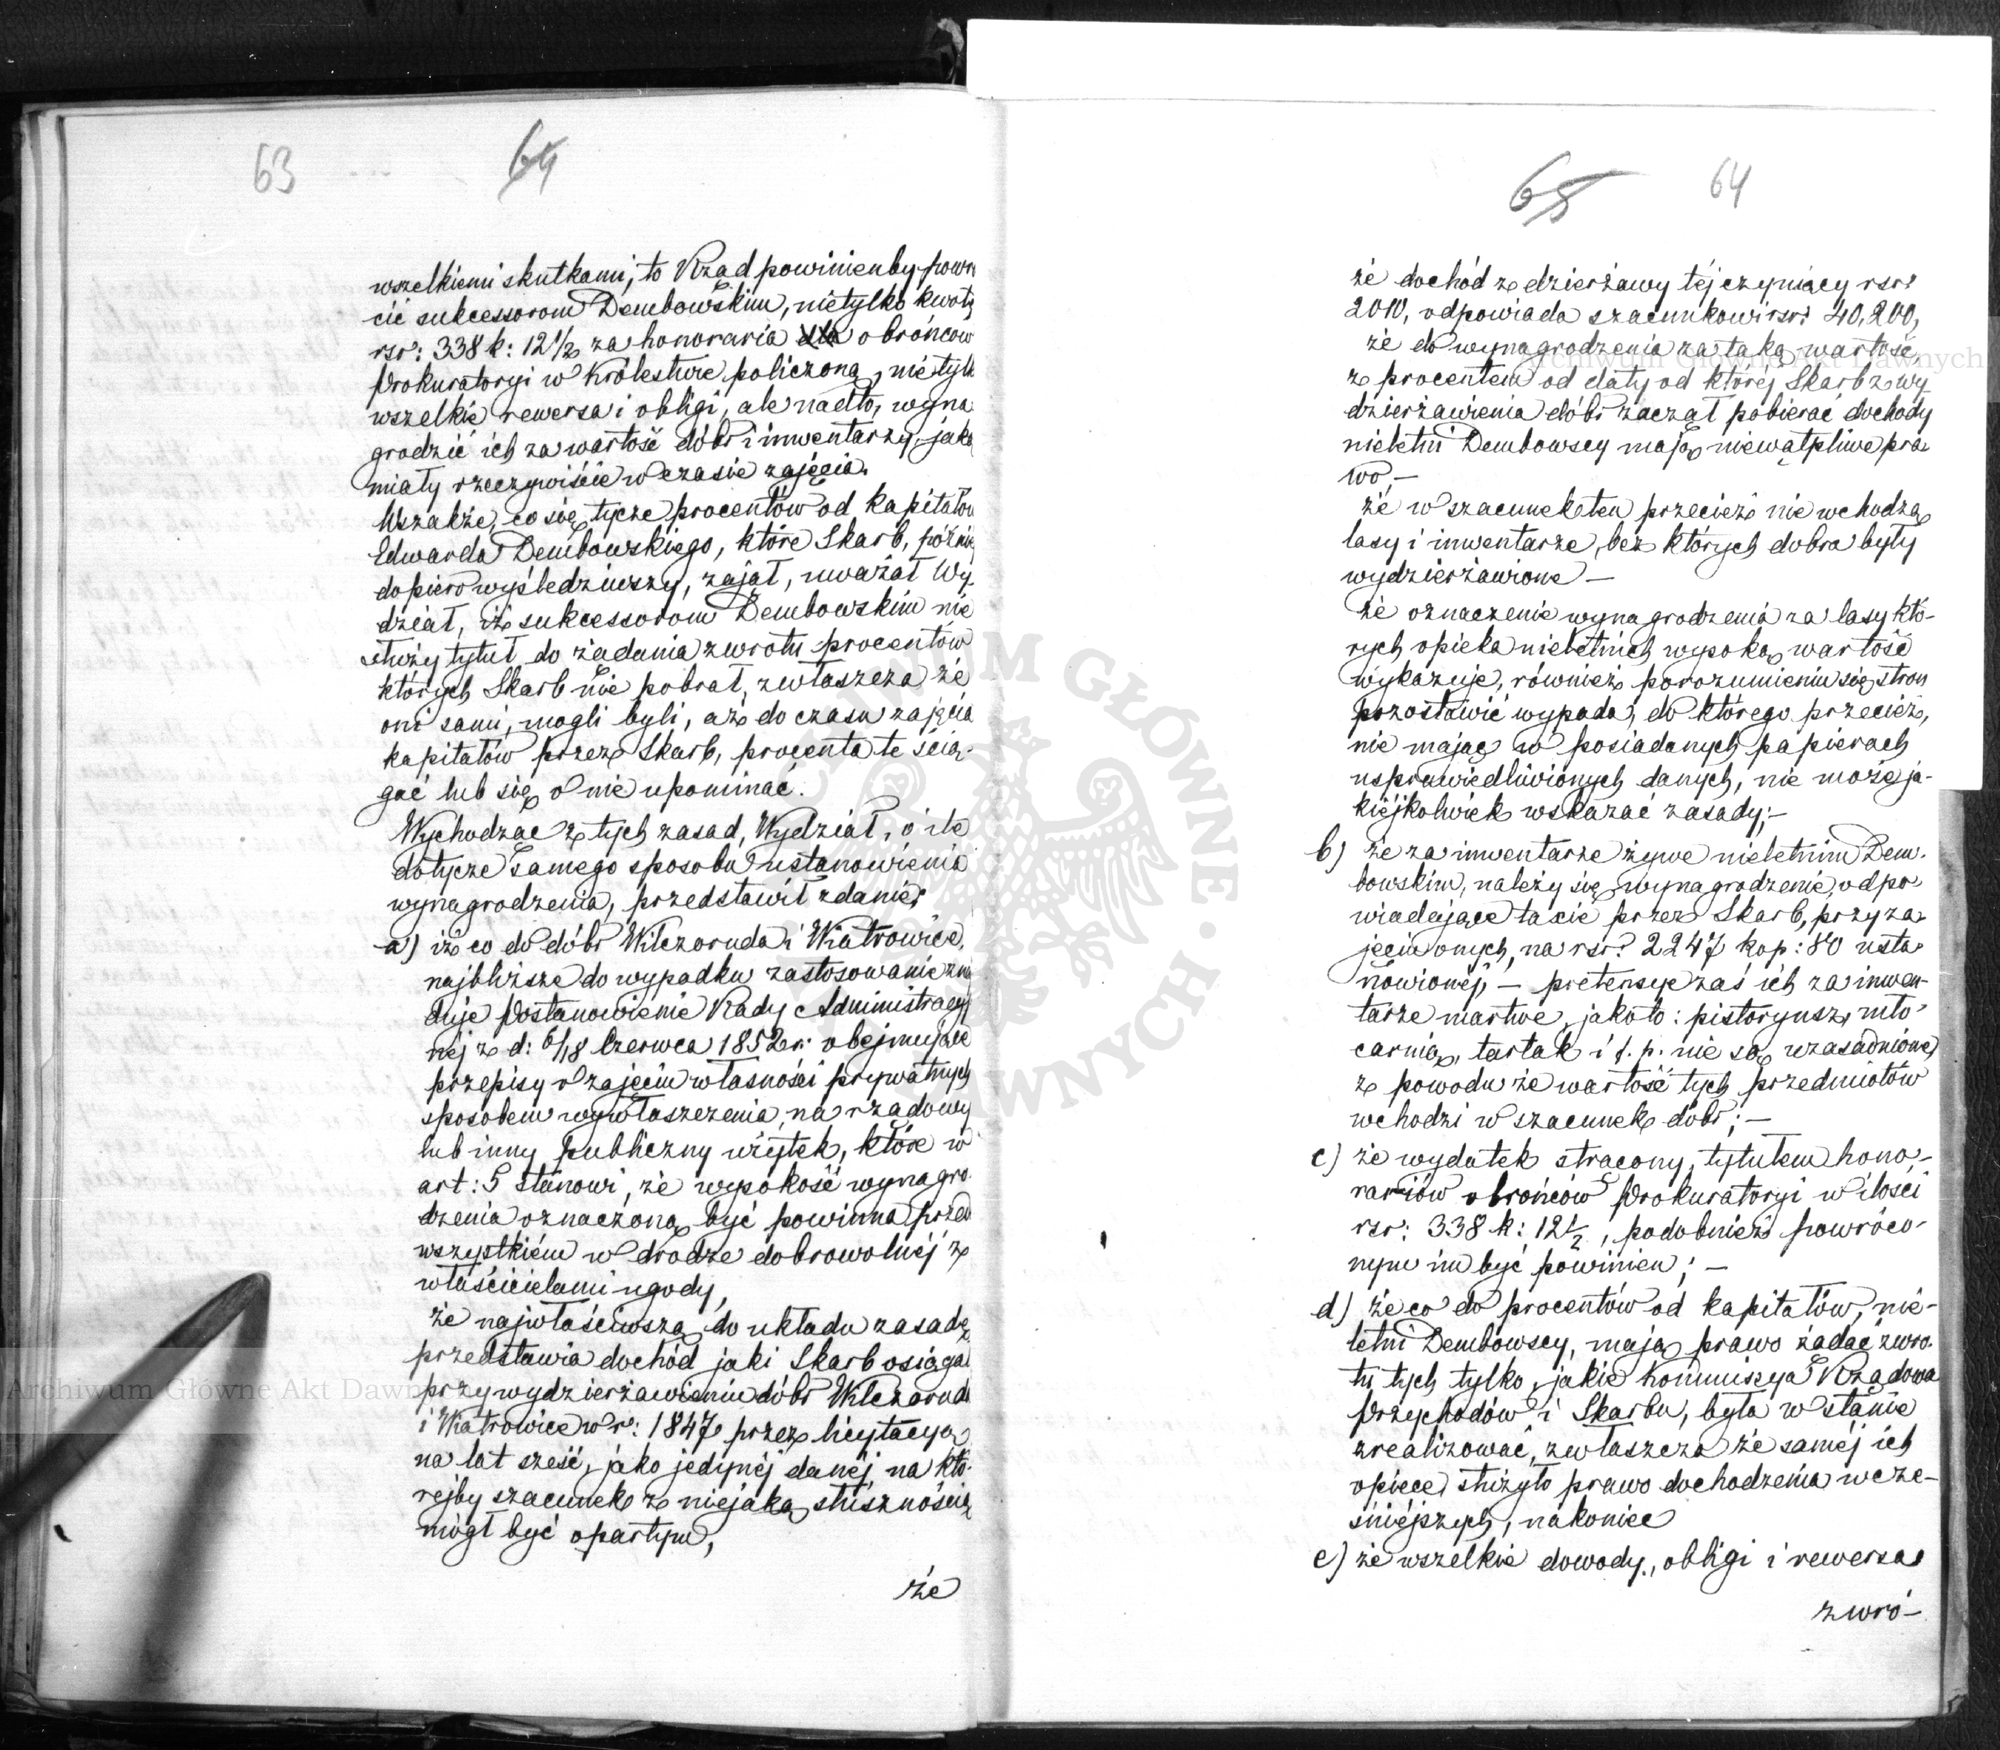 63 64
wszelkiemi skutkami, to Rząd powinienby powró
cić sukcessorom Dembowskim, nietylko kwotę
rsr: 338 k: 12 1/2 za honoraria obrońcow
Prokuratoryi w Królestwie policzoną, nietylko
wszelkie rewersa i obligi, ale nadto, wyna
grodzić ich za wartość dóbr i inwentarzy, jaką
miały rzeczywiście w czasie zajęcia.
Wszakże, co się tycze procentów od kapitałów
Edwarda Dembowskiego, które Skarb, później
dopiero wyśledziwszy, zajął, uważał Wy-
dział, iż sukcessorom Dembowskim nie
służy tytuł do żądania zwrotu procentów
których Skarb nie pobrał, zwłaszcza że
oni sami, mogli byli, aż do czasu zajęcia
kapitałów przez Skarb, procenta te ścią-
gać lub się o nie upominać.
Wychodząc z tych zasad, Wydział, o ile
dotycze samego sposobu ustanowienia
wynagrodzenia, przedstawił zdanie:
a) iż co do dóbr Wilczoruda i Wiatrowice,
najbliższe do wypadku zastosowanie znaj
duje Postanowienie Rady Administracyj
nej z d: 6/18 Czerwca 1852 r: obejmujące
przepisy o zajęciu własności prywatnych
sposobem wywłaszczenia, na rządowy
lub inny publiczny użytek, które w
art: 5 stanowi, że wysokość wynagro-
dzenia oznaczoną być powinna przede
wszystkiém w drodze dobrowolnéj z
właścicielami ugody,
że najwłaściwszą do układu zasadę
przedstawia dochód jaki Skarb osiągał
przy wydzierżawieniu dóbr Wilczoruda
i Wiatrowice w r: 1847 przez licytacyą
na lat sześć, jako jedynéj danéj na któ-
réjby szacunek z niejaką słusznością
mógł być opartym,
że
65 64
że dochód z dzierżawy téj czyniący rsr:
2010, odpowiada szacunkowi rsr: 40,200,
że do wynagrodzenia za taką wartość
z procentem od daty od któréj Skarb z wy-
dzierżawienia dóbr zaczął pobierać dochody
nieletni Dembowscy mają niewątpliwe pra-
wo, –
że w szacunek ten przecież nie wchodzą
lasy i inwentarze, bez których dobra były
wydzierżawione –
że oznaczenie wynagrodzenia za lasy któ-
rych opieka nieletnich wysoką wartość
wykazuje, również porozumieniu się stron
pozostawić wypada, do którego przecież,
nie mając w posiadanych papierach
usprawiedliwionych danych, nie może ja-
kiéjkolwiek wskazać zasady; –
b) że za inwentarze żywe nieletnim Dem-
bowskim, należy się wynagrodzenie, odpo
wiadające taxie przez Skarb, przy za-
jęciu onych, na rsr: 2247 kop: 80 usta-
nowionéj, – pretensye zaś ich za inwen-
tarze martwe, jakoto: pistoryusz, mło-
carnią, tartak i t. p. nie są uzasadnione,
z powodu że wartość tych przedmiotów
wchodzi w szacunek dóbr; –
c) że wydatek strącony, tytułem hono-
rariów obrońców Prokuratoryi w ilości
rsr: 338 k: 12 1/2, podobnież powróco-
nym im być powinien; –
d) że co do procentów od kapitałów, nie-
letni Dembowscy, mają prawo żądać zwro-
tu tych tylko, jakie Kommissya Rządowa
Przychodów i Skarbu, była w stanie
zrealizować, zwłaszcza że saméj ich
opiece, służyło prawo dochodzenia wcze-
śniéjszych, nakoniec
e) że wszelkie dowody, obligi i rewersa
zwró-
Archiwum Główne Akt Dawnych